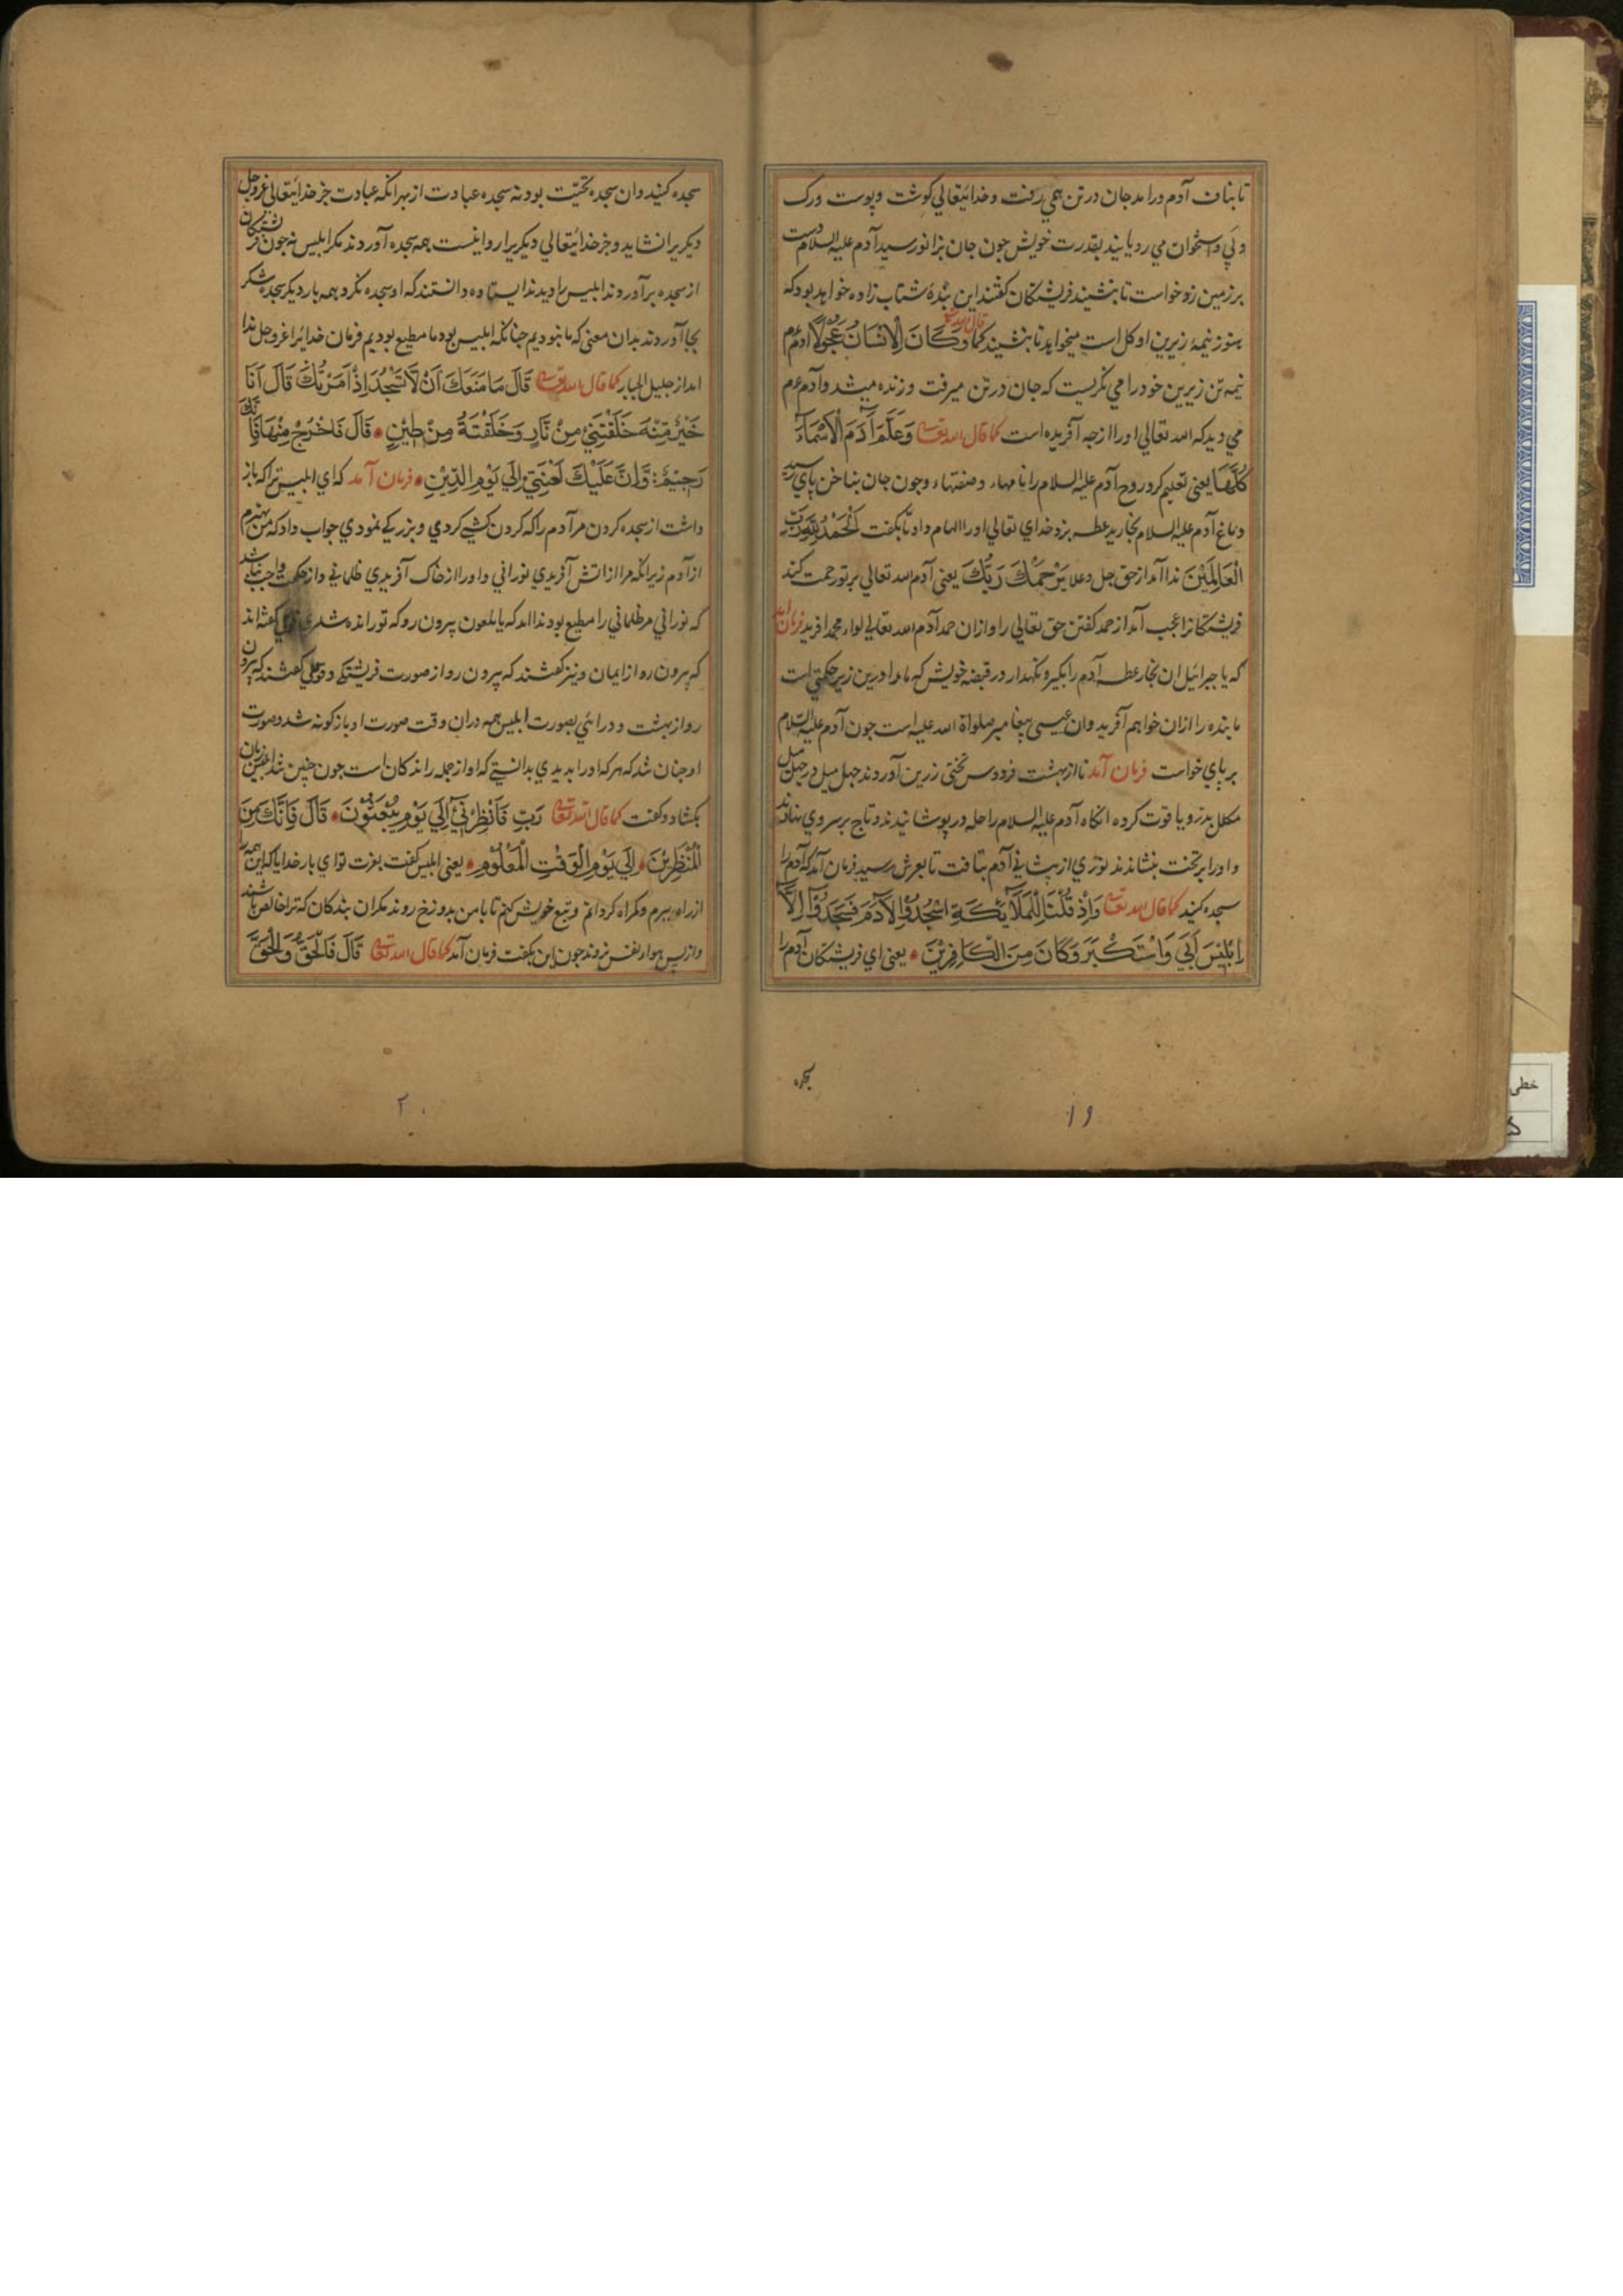 تا بناف آدم درامد جان در تن همی رفت و خدایتعالی کوشت و پوست ورک
و پی و استخوان می رویانید بقدرت خویش جون جان بزانو رسید آدم علیه السلام دست
بر زمین زد خواست تا بنشیند فریشتکان کفتند این بندهٔ شتاب زاده خواهد بود که
هنوز نیمهٔ زیرین او کل است میخواهد تا بنشیند کما قال الله تع وَكَانَ الْاِنْسَانُ عَجُولًا آدم عم
نیمه تن زیرین خود را می نکریست که جان در تن میرفت و زنده میشد و آدم عم
می دید که الله تعالی او را از جه آفریده است کما قال الله تعالی وَعَلَّمَ آدَمَ الْاَسْمَآءَ
كُلَّهَا یعنی تعلیم کرد روح آدم علیه السلام را نامهاء و صفتهاء و جون جان بناخن پای رسید
دماغ آدم علیه السلام بخارید عطسه بزد خدای تعالی او را الهام داد تا بکفت اَلْحَمْدُ لِلّٰهِ رَبِّ
الْعَالَمِیْنَ ندا آمد از حق جل وعلا یَرْحَمُكَ رَبُّكَ یعنی آدم الله تعالی بر تو رحمت کند
فریشتکانرا عجب آمد از حمد کفتن حق تعالی را و ازان حمد آدم الله تعالی لواء محمد افرید فرمان امد
که یا جبرائیل ان بخار عطسه آدم را بکیر و نکهدار در قبضه خویش که ما را درین زیر حکمتی است
ما بنده را ازان خواهیم آفرید وان عیسی پیغامبر صلواة الله علیه است جون آدم علیه السلام
بر پای خواست فرمان آمد تا از بهشت فردوس تختی زرین آوردند جهل میل در جهل میل
مکلل بدر و یاقوت کرده انکاه آدم علیه السلام را حله در پوشانیدند و تاج بر سر وی نهادند
و او را بر تخت بنشاندند نوری از پیشانی آدم بتافت تا بعرش رسید فرمان آمد که آدم را
سجده کنید کما قال الله تعالی وَاِذْ قُلْنَا لِلْمَلَآئِكَةِ اسْجُدُوْا لِاٰدَمَ فَسَجَدُوْٓا اِلَّآ
اِبْلِیْسَ اَبٰی وَاسْتَكْبَرَ وَكَانَ مِنَ الْكَافِرِیْنَ یعنی ای فریشتکان آدم را
سجده
۱۹
سجده کنید وان سجدهٔ تحیّت بود نه سجده عبادت از بهر انکه عبادت جز خدایتعالی عزوجل
دیکریرا نشاید و جز خدایتعالی دیکریرا روا نیست همه سجده آوردند مکر ابلیس نه جون فریشتکان
از سجده برآوردند ابلیس را دیدند ایستاده دانستند که او سجده نکرد همه بار دیکر سجده شکر
بجا آوردند بدان معنی که ما نبودیم جنانکه ابلیس بود ما مطیع بودیم فرمان خدایرا عزوجل ندا
امد از جلیل الجبار کما قال الله تعالی قَالَ مَا مَنَعَكَ اَنْ لَّا تَسْجُدَ اِذْ اَمَرْتُكَ قَالَ اَنَا
خَیْرٌ مِّنْهُ خَلَقْتَنِیْ مِنْ نَّارٍ وَخَلَقْتَهُ مِنْ طِیْنٍ قَالَ فَاخْرُجْ مِنْهَا فَاِنَّكَ
رَجِیْمٌ وَّاِنَّ عَلَیْكَ لَعْنَتِیْٓ اِلٰی یَوْمِ الدِّیْنِ فرمان آمد که ای ابلیس ترا که باز
داشت از سجده کردن مر آدم را که کردن کشی کردی و بزرکی نمودی جواب داد که من بهترم
از آدم زیرا نکه مرا از اتش آفریدی نورانی و او را از خاک آفریدی ظلمانی و از حکمت واجب نباشد
که نورانی مر ظلمانی را مطیع بود ندا امد که یا ملعون بیرون رو که تو رانده شدی قولی کفته اند
که بیرون رو از ایمان و نیز کفتند که بیرون رو از صورت فریشتکی و قولی کفتند که بیرون
رو از بهشت و درائی بصورت ابلیس همه دران وقت صورت او باز کونه شد و صورت
او جنان شد که هر که او را بدیدی بدانستی که او از جمله راندکان است جون جنین شد ابلیس زبان
بکشاد و کفت کما قال الله تعالی رَبِّ فَاَنْظِرْنِیْٓ اِلٰی یَوْمِ یُبْعَثُوْنَ قَالَ فَاِنَّكَ مِنَ
الْمُنْظَرِیْنَ اِلٰی یَوْمِ الْوَقْتِ الْمَعْلُوْمِ یعنی ابلیس کفت بعزت تو ای بار خدایا که این همه را
از راه ببرم و کمراه کردانم و تبع خویش کنم تا با من بدوزخ روند مکران بندکان که ترا خالص باشند
و از پس هواء نفس نروند جون این بکفت فرمان آمد کما قال الله تعالی قَالَ فَالْحَقُّ وَالْحَقَّ
۲۰
خطی